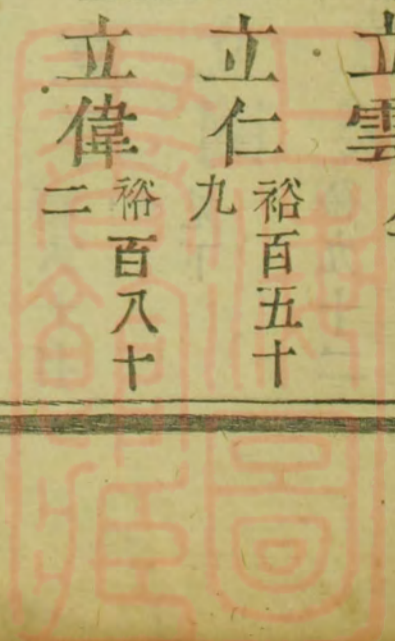 立雲
立仁 裕百五十九
立偉 裕百八十二